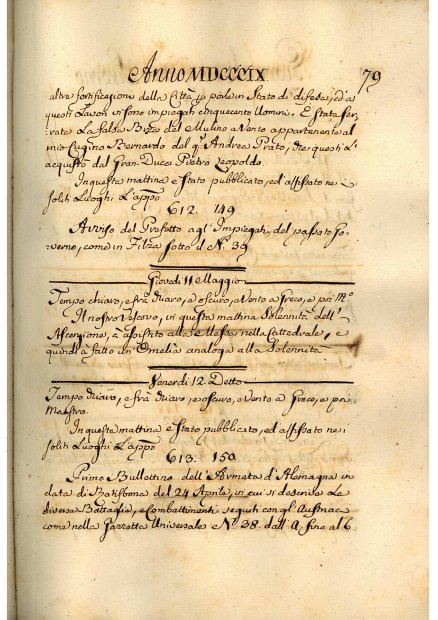 Anno MDCCCIX. 79
altre fortificazioni della Città p porle in Stato di difesa, ed a
questi Lavori vi sono impiegati cinquecento Uomini. È stata ser=
rata La falsa Braga del Mulino a Vento appartenente al
mio Cugino Bernardo del q.m Andrea Prato, che questi l'
acquistò dal Gran-Duca Pietro Leopoldo.
In questa mattina è stato pubblicato, ed affissato ne
soliti Luoghi L'appo
612. 149
Avviso del Prefetto agl'Impiegati, del passato Go=
verno, come in Filza Sotto il N.o 39
Giovedì 11 Maggio
Tempo chiaro, e frà chiaro, e oscuro, e Vento a Greco, e poi M.o
Il nostro Vescovo, in questa mattina Solennità dell'
Ascensione, à assistito alla Messa nella Cattedrale, e
quindi à fatto un'Omelia analoga alla Solennità
Venerdì 12. Detto
Tempo chiaro, e frà chiaro, e oscuro, e Vento a Greco, e poi
Maestro.
In questa mattina è stato pubblicato, ed affissato nei
soliti Luoghi L'appo
613. 150
Primo Bullettino dell'Armata d'Alemagna in
data di Ratisbona del 24 Aprile, in cui si descrive Le
diverse Battaglie, e Combattimenti seguiti con gl'Austriaci
come nella Gazzetta Universale N.o 38. dall' A fino al 6